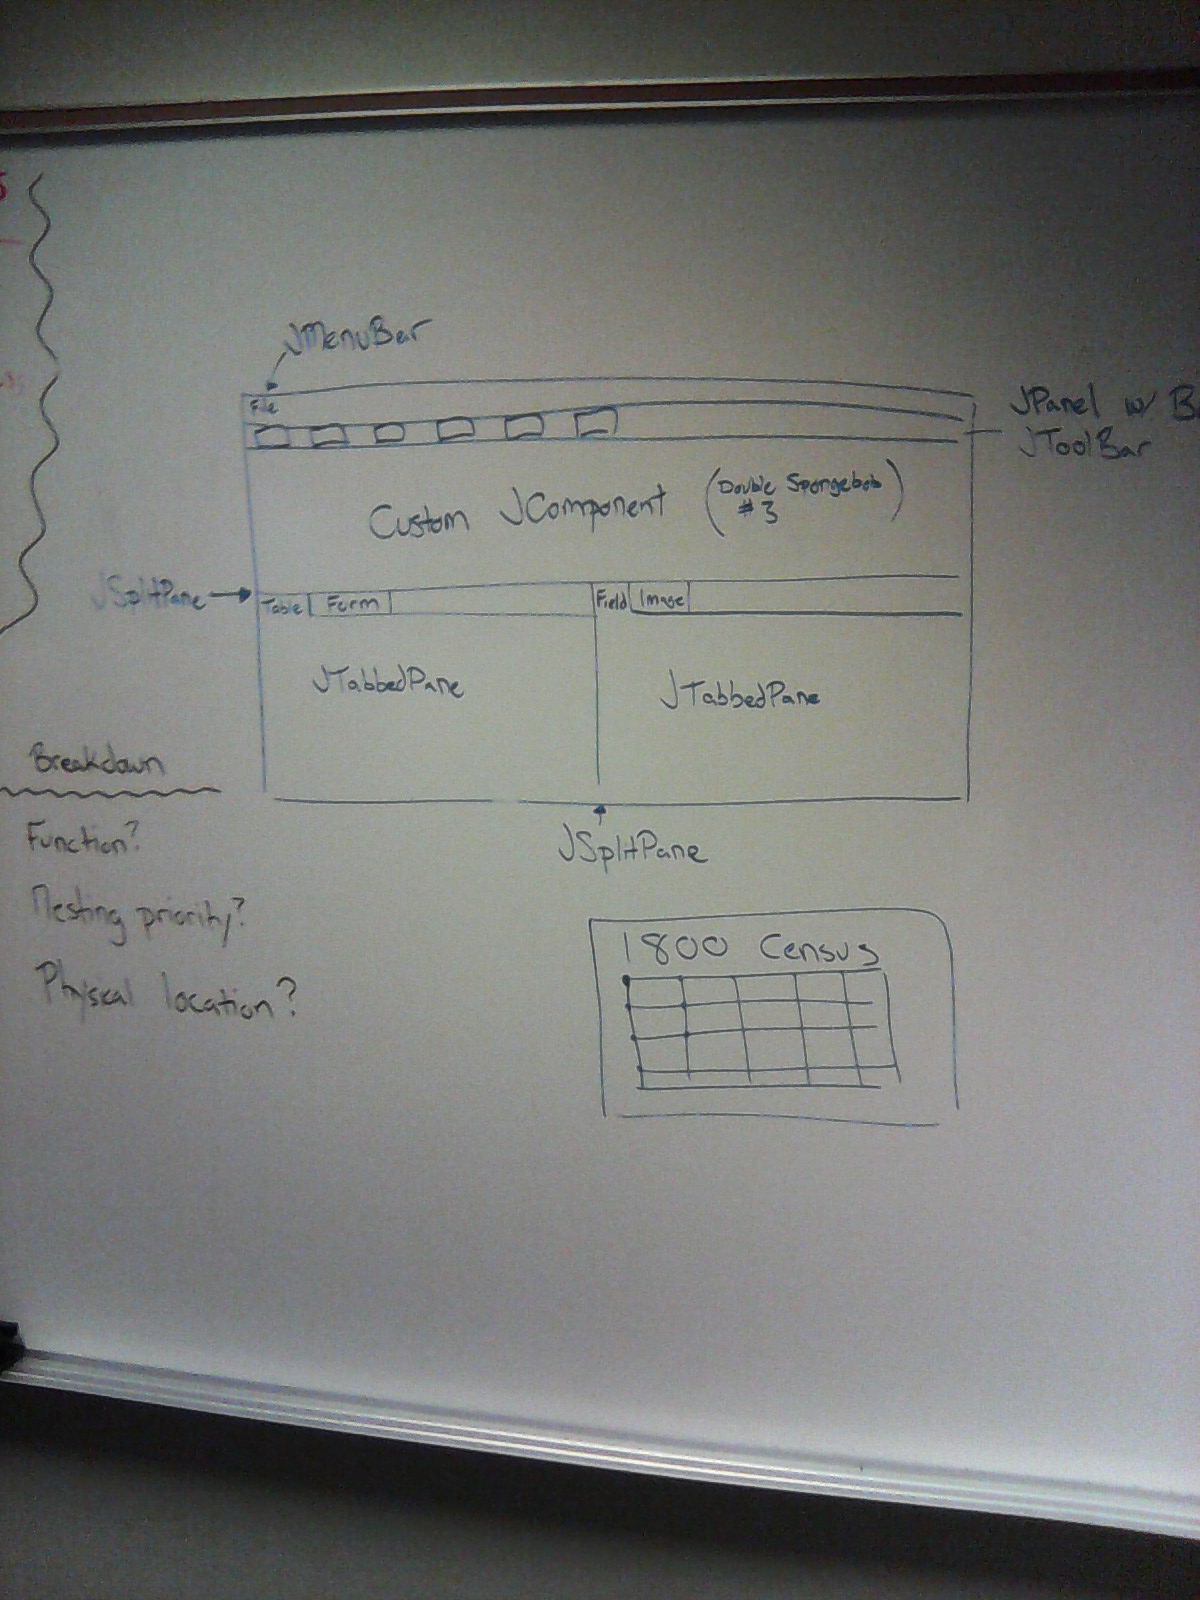 JMenuBar
File
JPanel w/ B
JToolBar
Custom JComponent (Double Spongebob
#3)
JSplitPane
Table Form Field Image
JTabbedPane JTabbedPane
JSplitPane
Breakdown
Function?
Nesting priority?
Physical location?
1800 Census